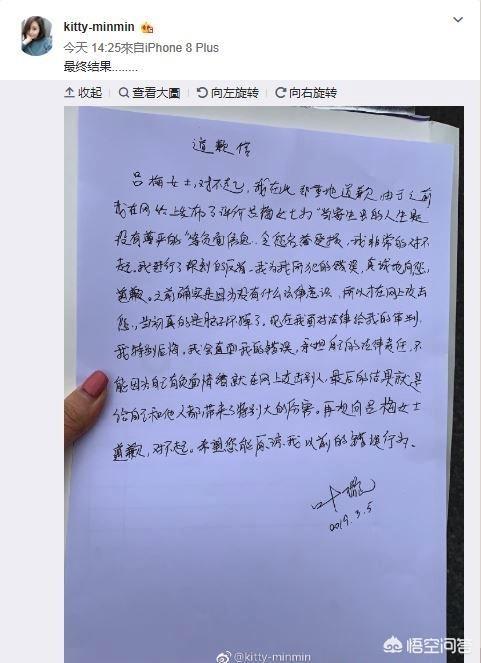 kitty-minmin
今天 14:25來自iPhone 8 Plus
最终结果........
收起 查看大圖 向左旋转 向右旋转
道歉信
吕梅女士,对不起,我在此郑重地道歉,由于之前
我在网络上发布了评价吕梅女士为"当寄生虫的人生是
没有尊严的"等负面信息,令您名誉受损,我非常的对不
起。我进行了深刻的反省,我为我所犯的错误,真诚地向您
道歉。之前确实是因为没有什么法律意识,所以才在网上攻击
您,当初真的是脑子坏掉了。现在面对法律给我的审判,
我特别后悔。我会直面我的错误,承担自己的法律责任,不
能因为自己有负面情绪就在网上攻击别人,最后的结果就是
给自己和他人都带来了特别大的伤害。再次向吕梅女士
道歉,对不起。希望您能原谅我以前的错误行为。
叶璇
2019.3.5
@kitty-minmin
悟空问答